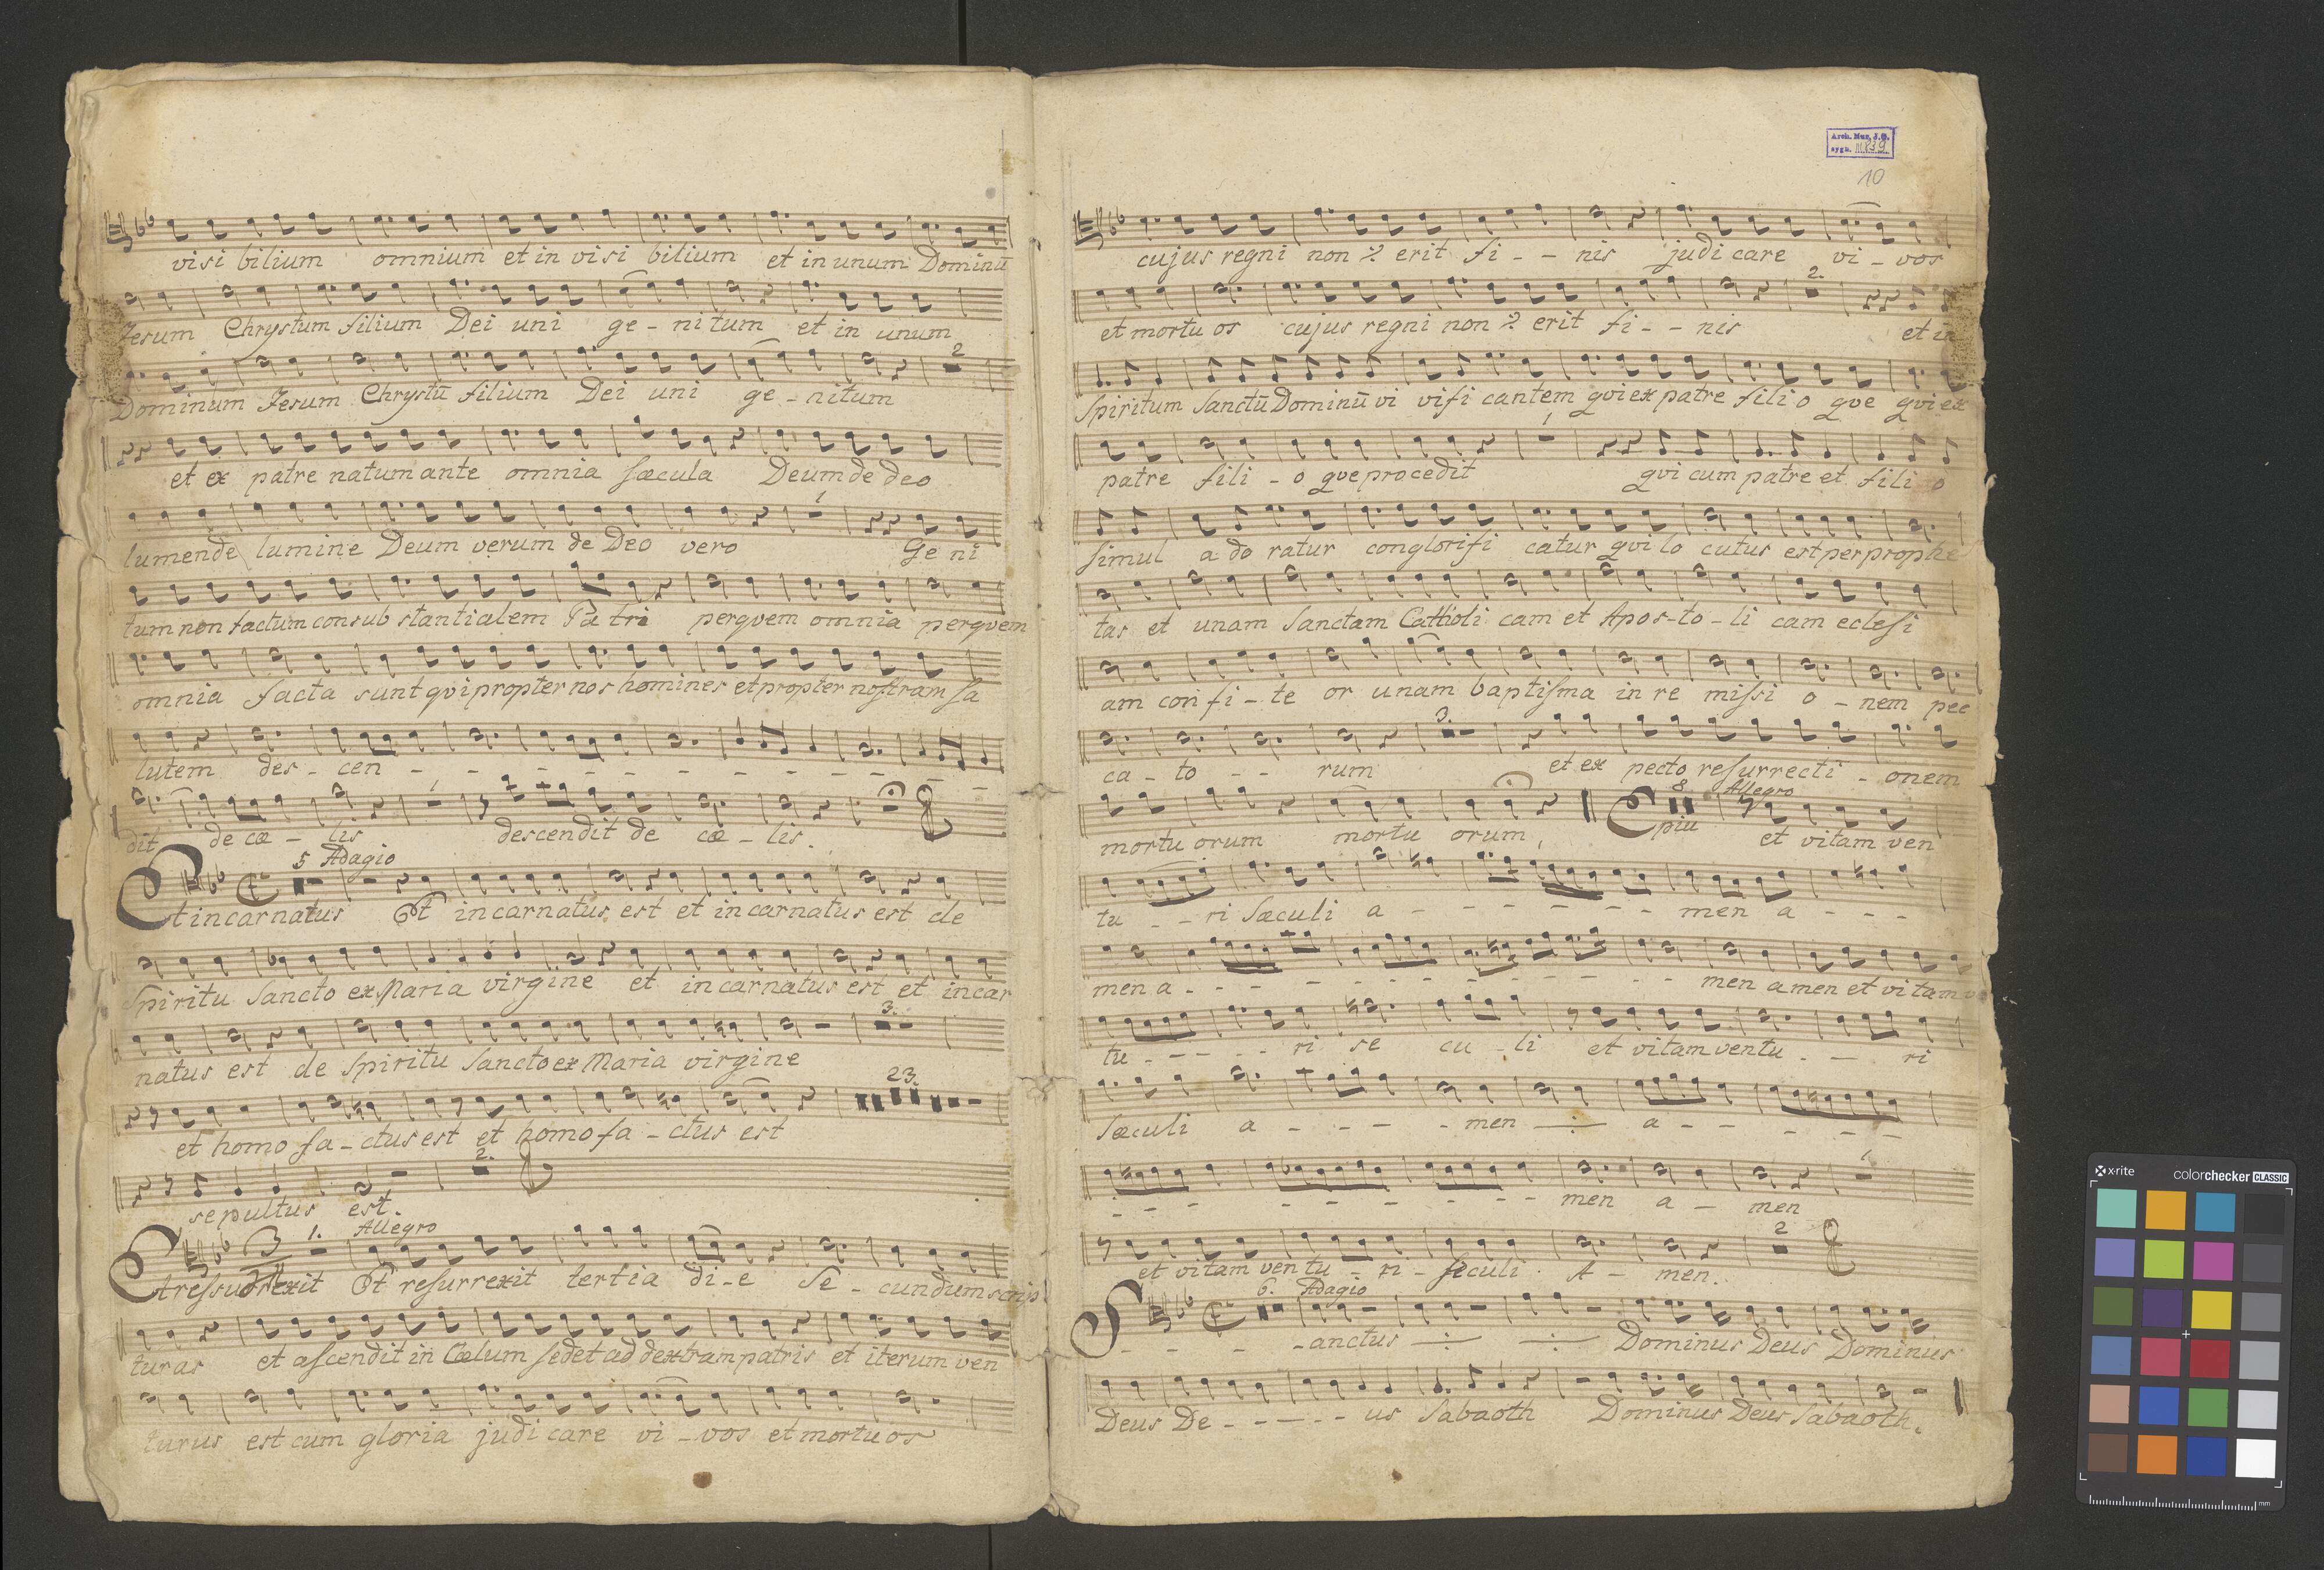 visi bilium omnium et in visi bilium et in unum Dominū
Jesum Chrystum filium Dei uni ge - nitum et in unum
Dominum Jesum Chrystū filium Dei uni ge - nitum
2
et ex patre natum ante omnia sæcula Deum de deo
lumen de lumine Deum verum de Deo vero Ge ni
1
tum non factum consub stantialem Pa tri per qvem omnia per qvem
omnia facta sunt qvi propter nos homines et propter nostram sa
lutem des - cen - - - - - - - - - -
dit de cæ - lis descendit de cæ - lis.
1
5 Adagio
Et incarnatus Et incarnatus est et in carnatus est de
Spiritu Sancto ex Maria virgine et in carnatus est et incar
natus est de Spiritu Sancto ex Maria virgine
3.
et homo fa - ctus est et homo fa - ctus est
23.
sepultus est.
2.
1. Allegro
Et ressurrexit Et resurrexit tertia di - e Se - cundum scrip
3
turas et ascendit in Cælum sedet ad dextram patris et iterum ven
turus est cum gloria judi care vi - vos et mortuos
Arch. Muz. J.G.
sygn. III 839
10
cujus regni non erit fi - - nis judi care vi - vos
et mortu os cujus regni non erit fi - - nis et in
2.
Spiritum Sanctū Dominū vi vifi cantem qvi ex patre fili o qve qvi ex
patre fili - o qve procedit qvi cum patre et fili o
1
simul a do ratur conglorifi catur qvi lo cutus est per prophe
tas et unam Sanctam Cattioli cam et Apos - to - li cam eclesi
am con fi - te or unam baptisma in re missi o - nem pec
ca - to - - rum et ex pecto resurrecti - onem
3.
mortu orum mortu orum, piu et vitam ven
8 Allegro
tu - - ri Sæculi a - - - - - - - men a - - -
men a - - - - - - - - - - men amen et vitam
tu - - - - - ri se cu - li et vitam ventu - - ri
Sæculi a - - - - men a - - - - -
- - - - - - - - - men a - men
1
et vitam ven tu - ri - seculi A - men.
2
6. Adagio
S - - - - anctus Dominus Deus Dominus
Deus De - - - - - us Sabaoth Dominus Deus Sabaoth.
x-rite colorchecker CLASSIC
mm